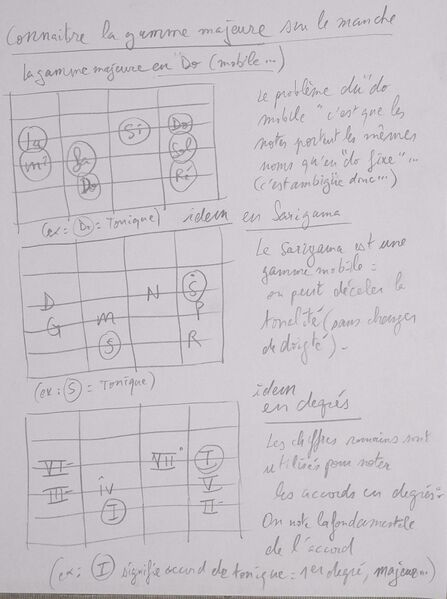 Connaitre la gamme majeure sur le manche
La gamme majeure en "Do (mobile...)
La
mi
fa
Do
Si
Do
Sol
Ré
Le problème du "do
mobile" c'est que les
notes portent les mêmes
noms qu'en "do fixe"...
(c'est ambigüe donc...)
(ex: Do = Tonique)
idem en Sarigama
D
G
m
S
N
S
P
R
Le Sarigama est une
gamme mobile :
on peut décaler la
tonalité (sans changer
de doigté).
(ex: S = Tonique)
idem
en degrés
VI-
III-
iv
I
VII°
I
V
II-
Les chiffres romains sont
utilisés pour noter
les accords en degrés.
On note la fondamentale
de l'accord
(ex: I signifie accord de tonique = 1er degré, majeur...)